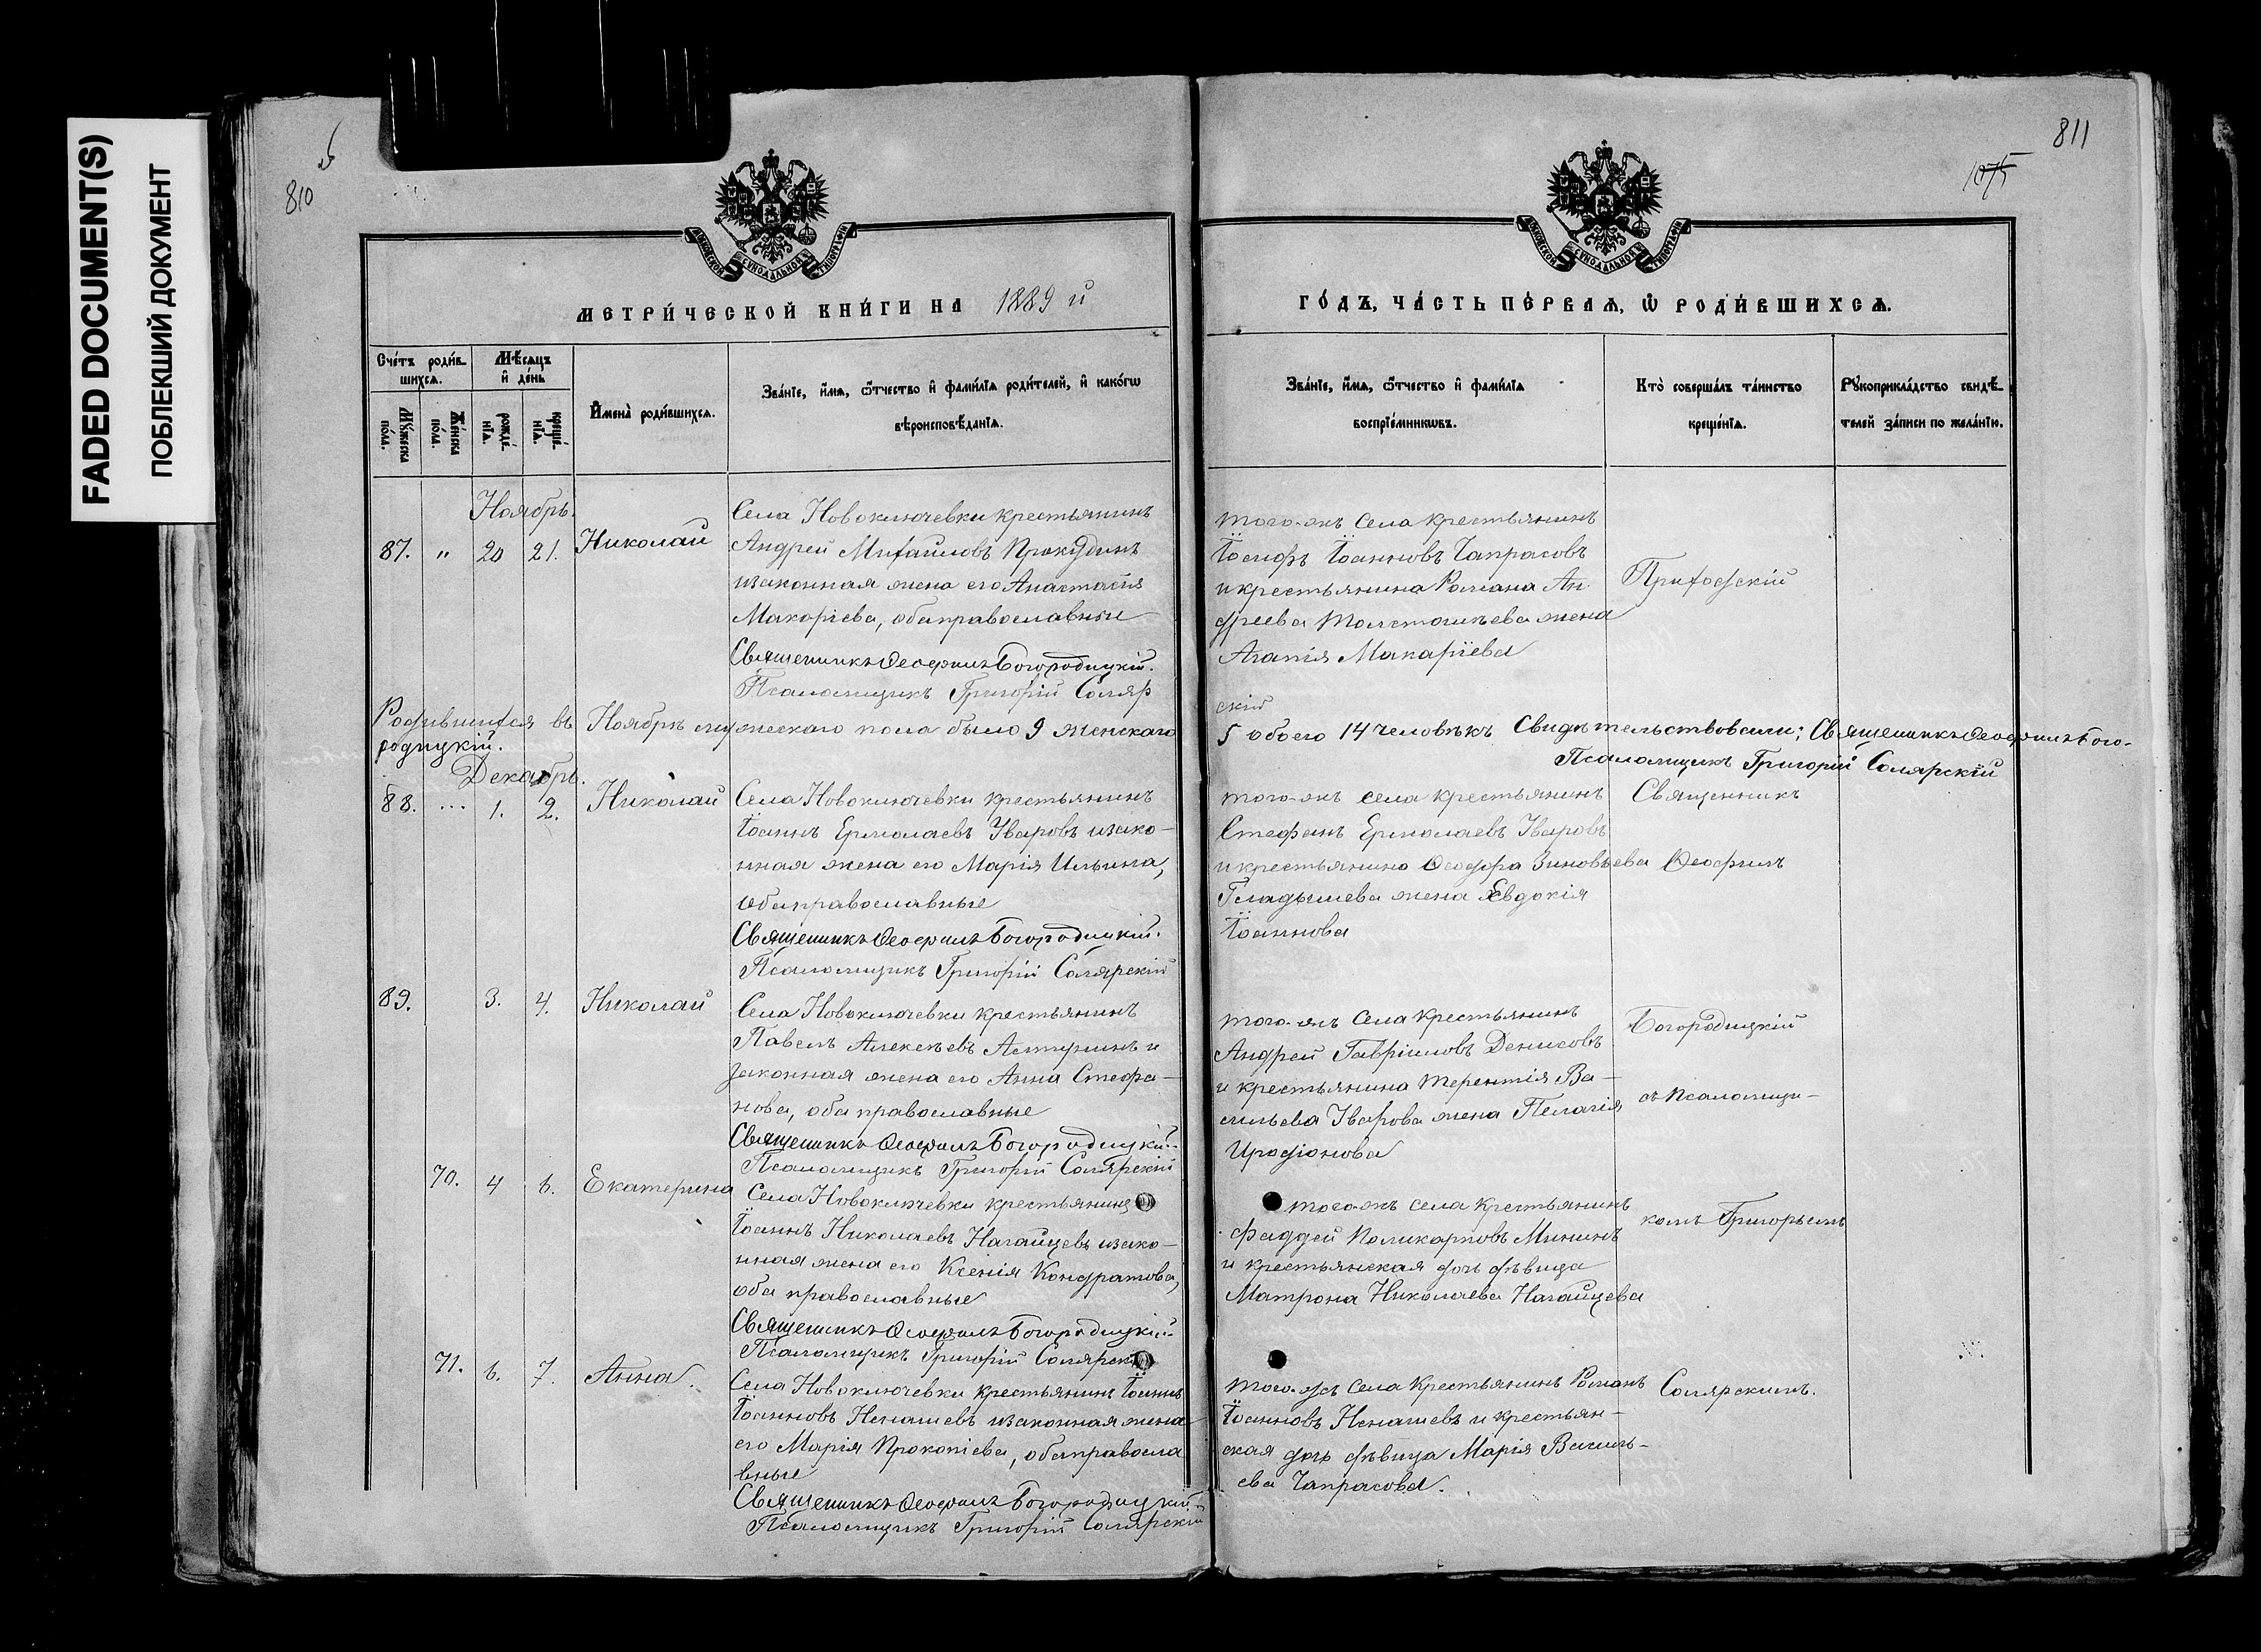 FADED DOCUMENT(S)
ПОБЛЕКШИЙ ДОКУМЕНТ
810
811
1075
МЕТРИ́ЧЕСКОЙ КНИ́ГИ НА 1889 й
ГО́ДЪ, ЧА́СТЬ ПЕ́РВАѦ, Ѡ҆ РОДИ́ВШИХСѦ.
Сче́тъ роди́в-
шихсѧ.
Мѣ́сѧцъ
и҆ де́нь
Мꙋ́жеска по́ла.
Же́нска по́ла.
рожде́-
нїѧ.
креще́-
нїѧ.
И҆мена̀ роди́вшихсѧ.
Зва́нїе, и҆́мѧ, ѻ҆́тчество и҆ фами́лїѧ роди́телей, и҆ како́гѡ
вѣроисповѣ́данїѧ.
Зва́нїе, и҆́мѧ, ѻ҆́тчество и҆ фами́лїѧ
воспрїе́мникѡвъ.
Кто̀ соверша́лъ та́инство
креще́нїѧ.
Рꙋкоприкла́дство свидѣ́-
телей за́писи по жела́нїю.
Ноябрь.
87. " 20 21. Николай
Села Новоключевки крестьянинъ
Андрей Михайловъ Прокудинъ
и законная жена его Анастасія
Макаріева, оба православные
Священникъ Ѳеофилъ Богородицкій.
Псаломщикъ Григорій Соляр
скій
того-жъ села крестьянинъ
Іосифъ Іоанновъ Чапрасовъ
и крестьянина Романа Ан-
дреева Толстошеева жена
Агапія Макаріева
Приходскій
Родившихся въ Ноябрѣ мужескаго пола было 9 женскаго 5 обоего 14 человѣкъ Свидѣтельствовали: Священникъ Ѳеофилъ Бого-
родицкій.
Псаломщикъ Григорій Солярскій
Декабрь.
88. ... 1. 2. Николай
Села Новоключевки крестьянинъ
Іоаннъ Ермолаевъ Уваровъ и зако-
нная жена его Марія Ильина,
оба православные
Священникъ Ѳеофилъ Богородицкій.
Псаломщикъ Григорій Солярскій
того-жъ села крестьянинъ
Стефанъ Ермолаевъ Уваровъ
и крестьянина Ѳеодора Зиновьева
Гладышева жена Евдокія
Іоаннова
Священникъ
Ѳеофилъ
89. 3. 4. Николай
Села Новоключевки крестьянинъ
Павелъ Алексѣевъ Астеринъ и
законная жена его Анна Стефа-
нова, оба православные
Священникъ Ѳеофилъ Богородицкій.
Псаломщикъ Григорій Солярскій
того-жъ села крестьянинъ
Андрей Гавріиловъ Денисовъ
и крестьянина Терентія Ва-
сильева Уварова жена Пелагія
Иродіонова
Богородицкій
съ псаломщи-
70. 4 6. Екатерина
Села Новоключевки крестьянинъ
Іоаннъ Николаевъ Нагайцевъ и зако-
нная жена его Ксенія Кондратова,
оба православные
Священникъ Ѳеофилъ Богородицкій.
Псаломщикъ Григорій Солярскій
того-жъ села крестьянинъ
Фаддей Поликарповъ Мининъ
и крестьянская дочь дѣвица
Матрона Николаева Нагайцева
комъ Григорьемъ
71. 6. 7. Анна.
Села Новоключевки крестьянинъ Іоаннъ
Іоанновъ Ненашевъ и законная жена
его Марія Прокопіева, оба правосла
вные
Священникъ Ѳеофилъ Богородицкій.
Псаломщикъ Григорій Солярскій
того-жъ села крестьянинъ Романъ
Іоанновъ Ненашевъ и крестьян-
ская дочь дѣвица Марія Василь-
ева Чапрасова.
Солярскимъ.